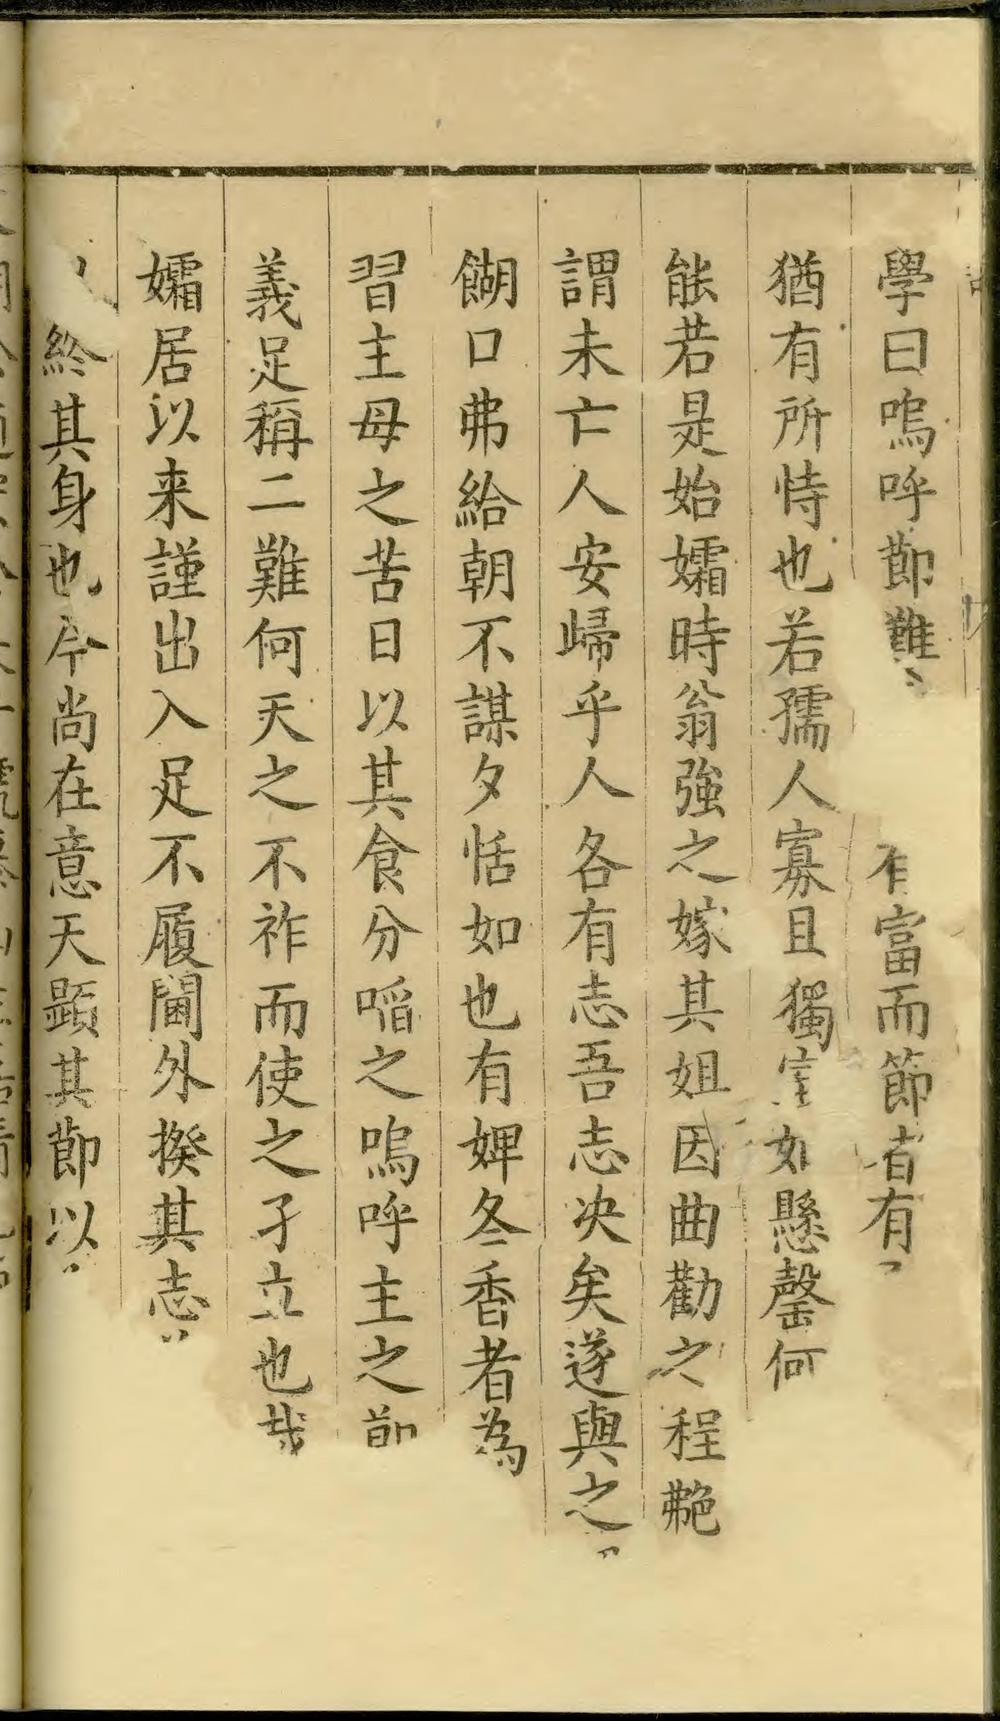 學曰嗚呼節難
有富而節者有
猶有所恃也若孺人寡且獨室如懸罄何
能若是始孀時翁強之嫁其姐因曲勸之程艴
謂未亡人安歸乎人各有志吾志决矣遂與之
餬口弗給朝不謀夕恬如也有婢冬香者為
習主母之苦日以其食分啗之嗚呼主之節
義足稱二難何天之不祚而使之孑立也哉
孀居以来謹出入足不履閫外揆其志
終其身也今尚在意天顕其節以